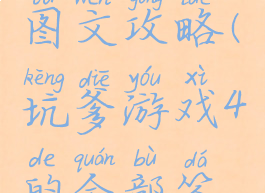 tú wén gōng lüè
图文攻略(
kēng diē yóu xì
坑爹游戏4
de quán bù dá
的全部答